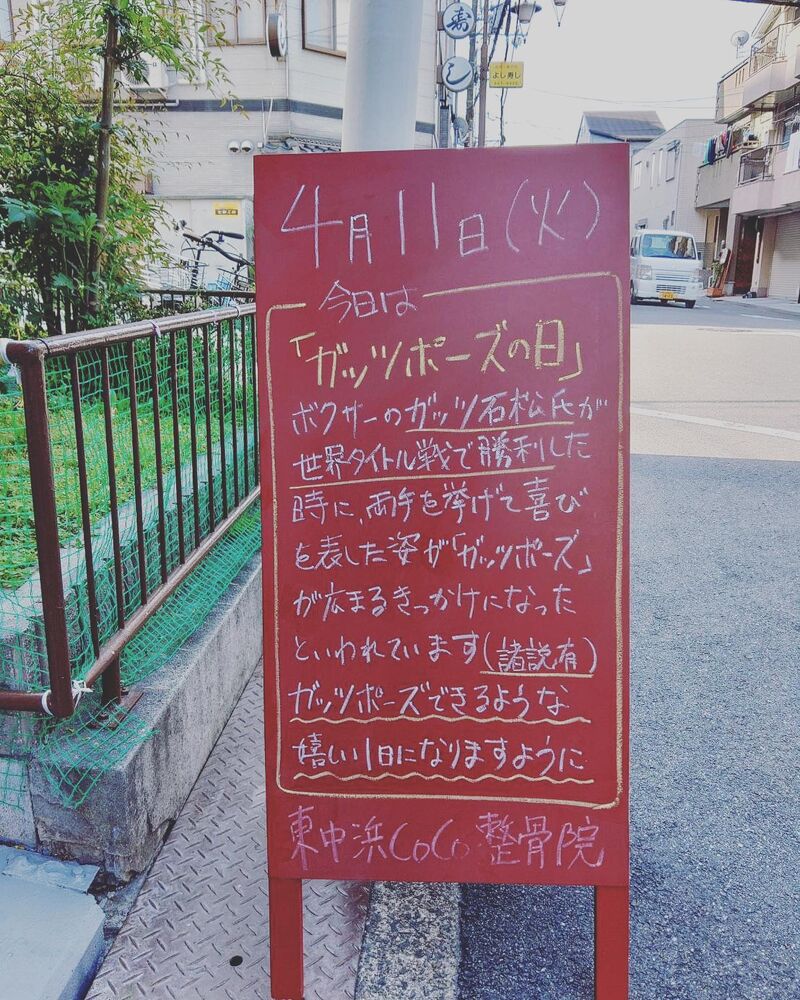 寿
し
よし寿し
4月11日(火)
今日は
「ガッツポーズの日」
ボクサーのガッツ石松氏が
世界タイトル戦で勝利した
時に、両手を挙げて喜び
を表した姿が「ガッツポーズ」
が広まるきっかけになった
といわれています(諸説有)
ガッツポーズできるような
嬉しい1日になりますように
東中浜CoCo整骨院